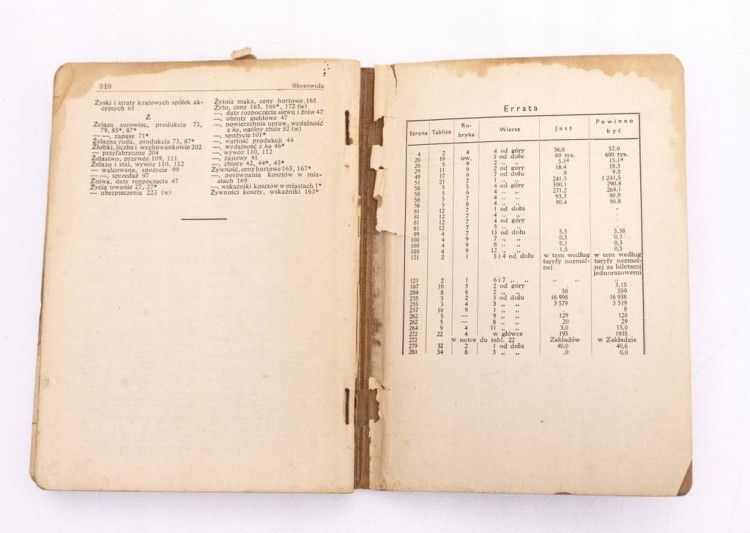 310 Skorowidz
Zyski i straty krajowych spółek ak-
cyjnych 61
Ż
Żelaza surowiec, produkcja 73,
79, 85*, 87*
— —, zapasy 71*
Żelazna ruda, produkcja 73, 87*
Żłobki, liczba i wychowankowie 202
— przyfabryczne 204
Żelastwo, przywóz 109, 111
Żelazo i stal, wywóz 110, 112
— walcowane, spożycie 99
— —, sprzedaż 97
Żniwa, daty rozpoczęcia 47
Życia trwanie 27, 27*
— ubezpieczenia 223 (w)
Żytnia mąka, ceny hurtowe 165
Żyto, ceny 165, 166*, 172 (w)
—, daty rozpoczęcia siewu i żniw 47
—, obroty giełdowe 47
—, powierzchnia upraw, wydajność
z ha, ogólny zbiór 52 (w)
—, spożycie 101*
—, wartość produkcji 44
—, wydajność z ha 46*
—, wywóz 110, 112
—, zasiewy 41
—, zbiory 42, 44*, 45*
Żywność, ceny hurtowe 165, 167*
—, porównania kosztów w mia-
stach 169
—, wskaźniki kosztów w miastach 1*
Żywności koszty, wskaźniki 163*
Errata
Strona Tablica Ru-bryka Wiersz Jest Powinno być
4 2 4 4 od góry 56,6 57,0
20 19 uw. 3 od dołu 60 tys. 600 tys.
26 5 9 2 „ „ 5,1* 15,1*
29 11 9 2 od góry 18,4 18,5
49 17 9 7 od dołu ,8 9,8
51 21 2 1 „ „ 241,5 1 241,5
56 5 5 4 od góry 300,1 290,4
56 5 6 4 „ „ 271,2 264,1
56 5 7 4 „ „ 93,3 90,9
56 5 8 4 „ „ 90,4 90,8
81 12 7 1 od dołu
81 12 7 4 „ „
81 12 7 5 „ „
99 4 7 13 od dołu 3,3 3,38
100 4 9 7 „ „ 0,5 0,3
100 4 9 8 „ „ 0,1 0,3
109 4 9 12 „ „ 1,5 0,5
121 2 1 3 i 4 od dołu w tem według w tem według
taryfy normal- taryfy normal-
nej nej za biletami
jednorazowemi
121 2 1 6 i 7 „ „ „ „ „
167 10 3 2 od góry . 3,15
204 8 6 2 „ „ 50 550
255 2 3 3 od dołu 16 998 16 938
255 3 4 3 „ „ 3 579 3 519
257 10 9 1 „ „ 8
262 5 — 9 „ „ 129 120
262 5 — 8 „ „ 20 29
264 9 4 11 „ „ 3,0 13,0
272 22 4 w główce 193 1935
272 w notce do tabl. 22 Zakładów w Zakładzie
279 32 2 1 od dołu 40,0 40,6
280 34 8 3 „ „ ,0 0,0